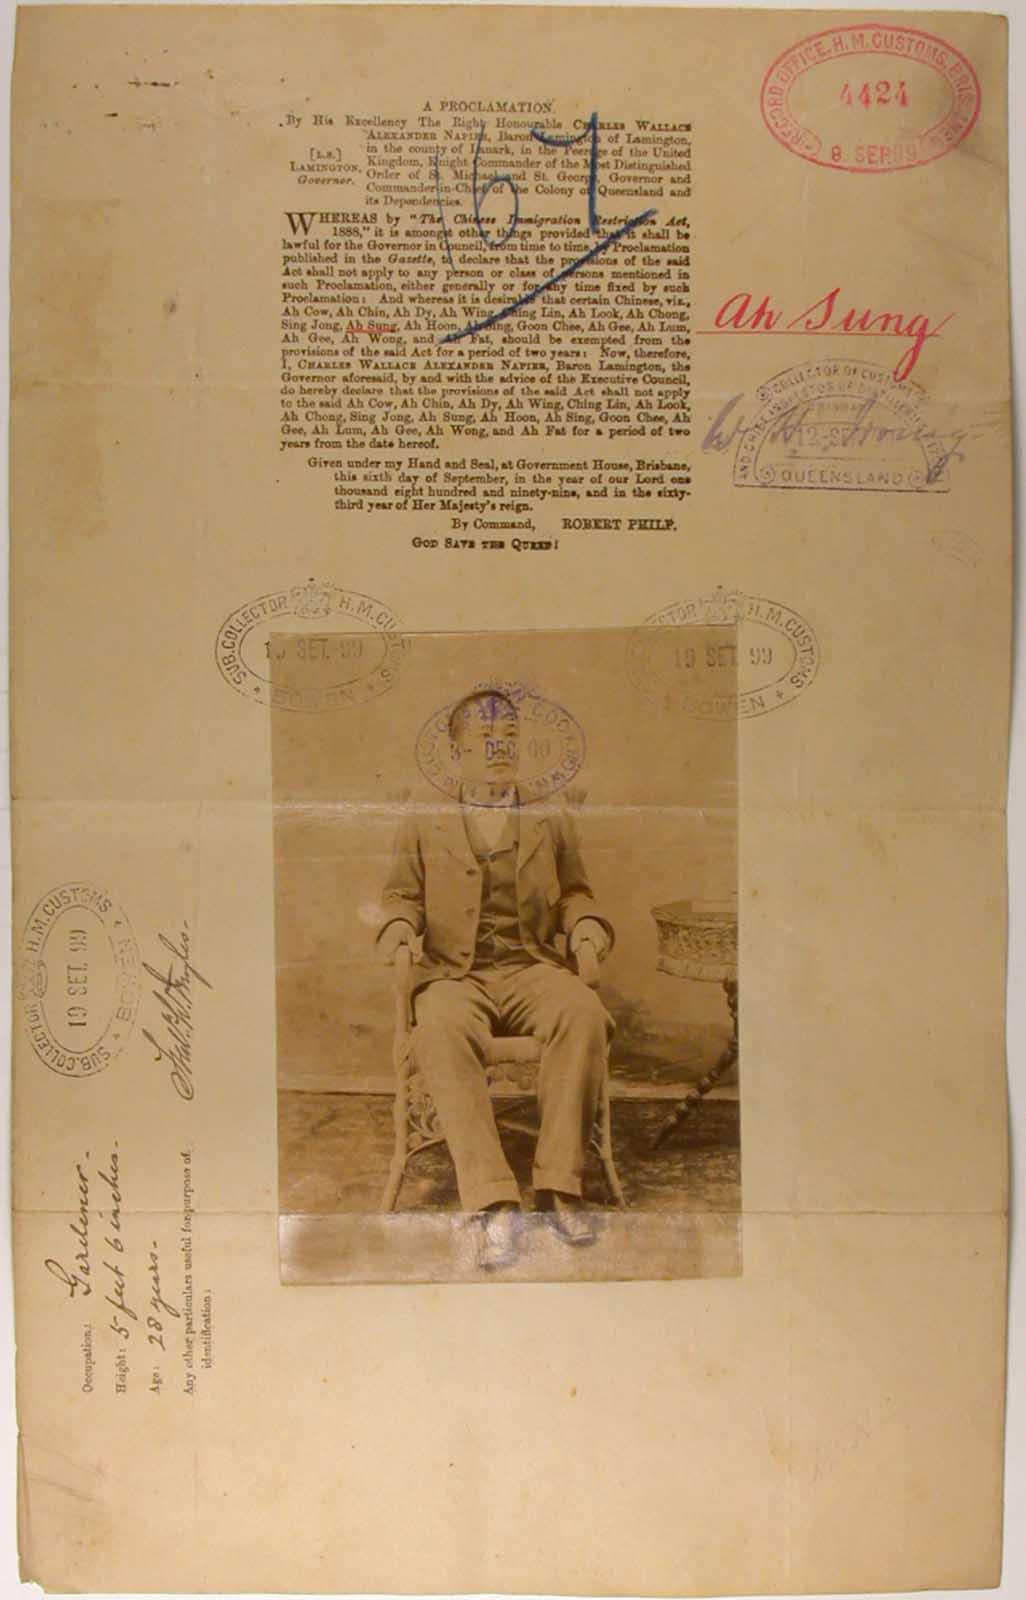 RECORD OFFICE. H. M. CUSTOMS, BRISBANE
4424
8 SEP. 99
A PROCLAMATION.
By His Excellency The Right Honourable CHARLES WALLACE
ALEXANDER NAPIER, Baron Lamington of Lamington,
in the county of Lanark, in the Peerage of the United
[L.S.]
Kingdom, Knight Commander of the Most Distinguished
LAMINGTON,
Order of St. Michael and St. George, Governor and
Governor.
Commander-in-Chief of the Colony of Queensland and
its Dependencies.
WHEREAS by "The Chinese Immigration Restriction Act,
1888," it is amongst other things provided that it shall be
lawful for the Governor in Council, from time to time, by Proclamation
published in the Gazette, to declare that the provisions of the said
Act shall not apply to any person or class of persons mentioned in
such Proclamation, either generally or for any time fixed by such
Proclamation: And whereas it is desirable that certain Chinese, viz.,
Ah Cow, Ah Chin, Ah Dy, Ah Wing, Ching Lin, Ah Look, Ah Chong,
Sing Jong, Ah Sung, Ah Hoon, Ah Sing, Goon Chee, Ah Gee, Ah Lum,
Ah Gee, Ah Wong, and Ah Fat, should be exempted from the
provisions of the said Act for a period of two years: Now, therefore,
I, CHARLES WALLACE ALEXANDER NAPIER, Baron Lamington, the
Governor aforesaid, by and with the advice of the Executive Council,
do hereby declare that the provisions of the said Act shall not apply
to the said Ah Cow, Ah Chin, Ah Dy, Ah Wing, Ching Lin, Ah Look,
Ah Chong, Sing Jong, Ah Sung, Ah Hoon, Ah Sing, Goon Chee, Ah
Gee, Ah Lum, Ah Gee, Ah Wong, and Ah Fat for a period of two
years from the date hereof.
Given under my Hand and Seal, at Government House, Brisbane,
this sixth day of September, in the year of our Lord one
thousand eight hundred and ninety-nine, and in the sixty-
third year of Her Majesty's reign.
By Command, ROBERT PHILP.
GOD SAVE THE QUEEN!
Ah Sung
COLLECTOR OF CUSTOMS
AND CHIEF INSPECTOR OF DISTILLERIES
12-SE
QUEENSLAND
SUB. COLLECTOR H.M. CUSTOMS
19 SET. 99
BOWEN
COLLECTOR H.M. CUSTOMS
19 SET 99
BOWEN
DEC 00
SUB. COLLECTOR H.M. CUSTOMS
19 SET. 99
BOWEN
Occupation: Gardener-
Height: 5 feet 6 inches-
Age: 28 years-
Any other particulars useful for purpose of
identification: